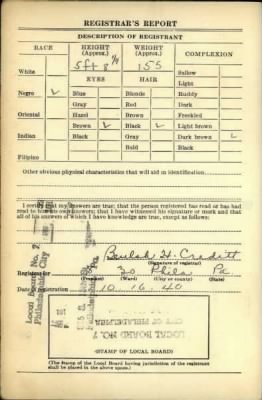 REGISTRAR'S REPORT
DESCRIPTION OF REGISTRANT
RACE
HEIGHT (Approx.)
WEIGHT (Approx.)
COMPLEXION
White
5 ft 8
155
Sallow
EYES
HAIR
Light
Negro ✓
Blue
Blonde
Ruddy
Gray
Red
Dark
Oriental
Hazel
Brown
Freckled
Brown ✓
Black ✓
Light brown
Indian
Black
Gray
Dark brown ✓
Bald
Black
Filipino
Other obvious physical characteristics that will aid in identification
I certify that my answers are true; that the person registered has read or has had
read to him his own answers; that I have witnessed his signature or mark and that
all of his answers of which I have knowledge are true, except as follows:
Beulah H.
(Signature of registrar)
Registrar for
30 Phila Pa
(Ward)
(City or county)
(State)
Date of registration 10 16 40
Local Board No. 7
Philadelphia City
LOCAL BOARD NO. 7
CITY OF PHILADELPHIA
(STAMP OF LOCAL BOARD)
(The Stamp of the Local Board having jurisdiction of the registrant
shall be placed in the above space.)